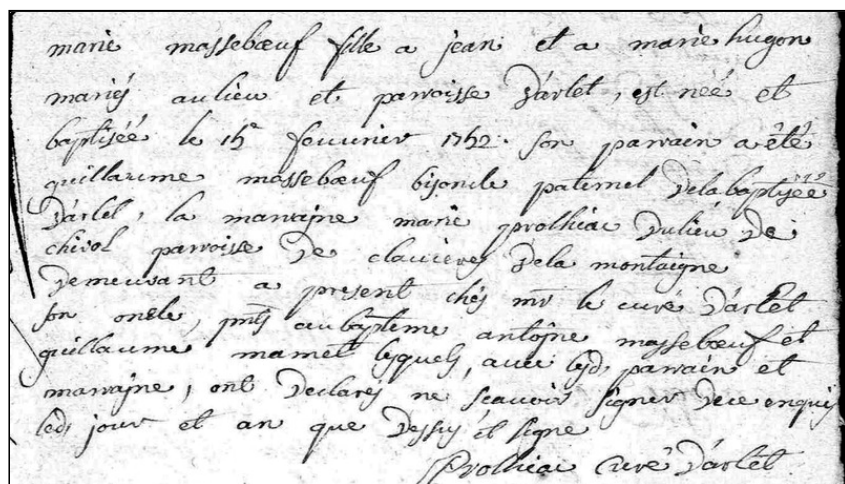 marie massebœuf fille a jean et a marie hugon
mariés au lieu et parroisse d'arlet, est néé et
baptiséé le 15e fevurier 1752. son parrain a été
guillaume massebœuf bisoncle paternel de la baptiséé
d'arlet, la marraine marie prolhiac du lieu de
chirol parroisse de clavieres de la montaigne
demeurant a present chés mr le curé d'arlet
son oncle, pnts au bapteme antoine massebœuf et
guillaume mamet lesquels, avec lesd. parrain et
marraine, ont declarés ne scavoir signer de ce enquis
led. jour et an que dessus et signe
Prolhiac curé d'arlet